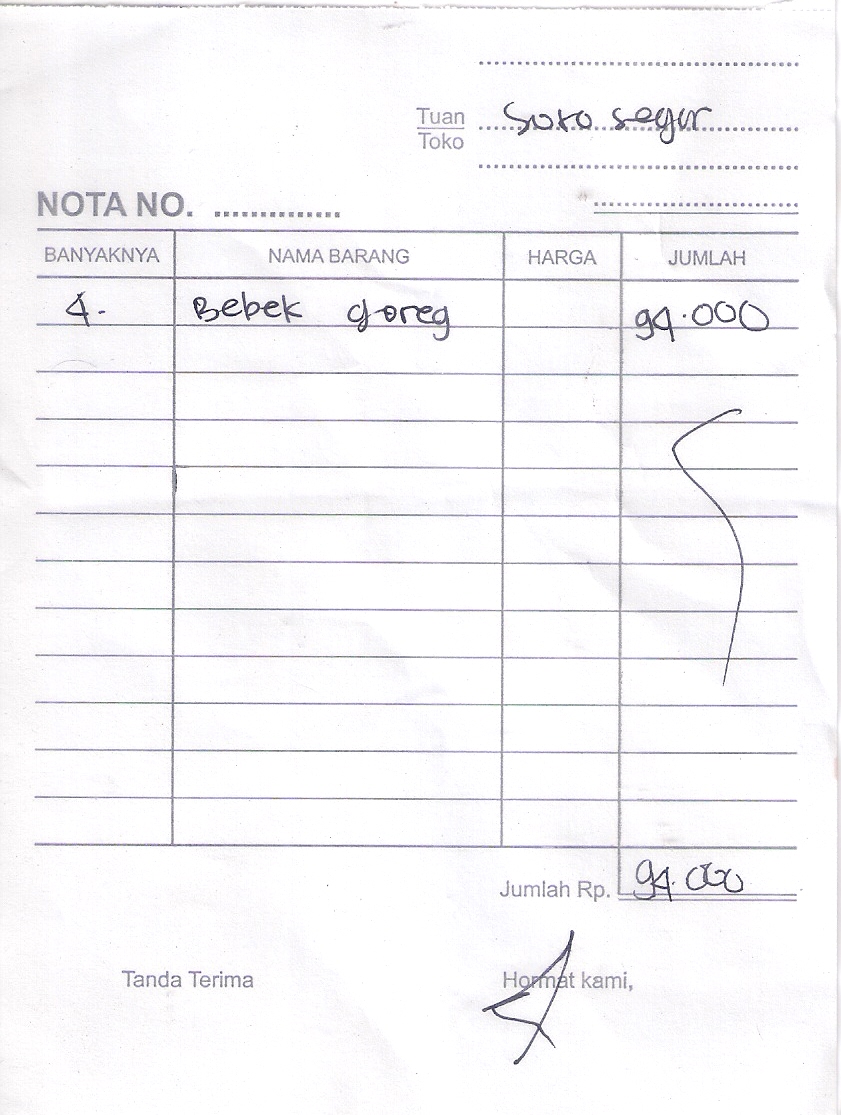 Tuan Soto segar
Toko
NOTA NO. ..............
BANYAKNYA NAMA BARANG HARGA JUMLAH
4. Bebek goreg 94.000
Jumlah Rp. 94.000
Tanda Terima Hormat kami,